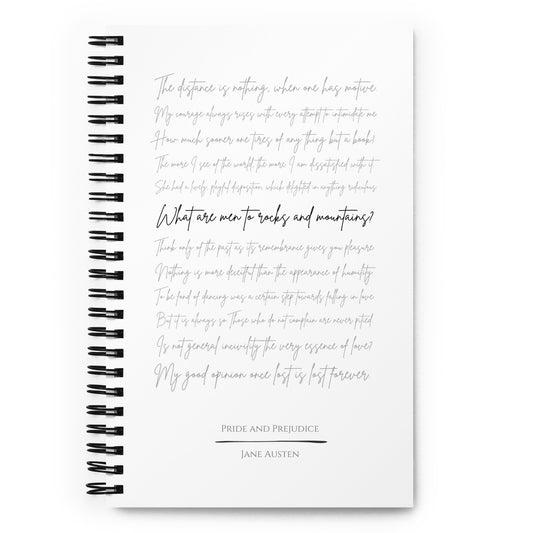 The distance is nothing, when one has motive.
My courage always rises with every attempt to intimidate me
How much sooner one tires of any thing but a book!
The more I see of the world, the more I am dissatisfied with it
She had a lively, playful disposition, which delighted in anything ridiculous
What are men to rocks and mountains?
Think only of the past as its remembrance gives you pleasure
Nothing is more deceitful than the appearance of humility
To be fond of dancing was a certain step towards falling in love
But it is always so. Those who do not complain are never pitied
Is not general incivility the very essence of love?
My good opinion once lost is lost forever
Pride and Prejudice
Jane Austen